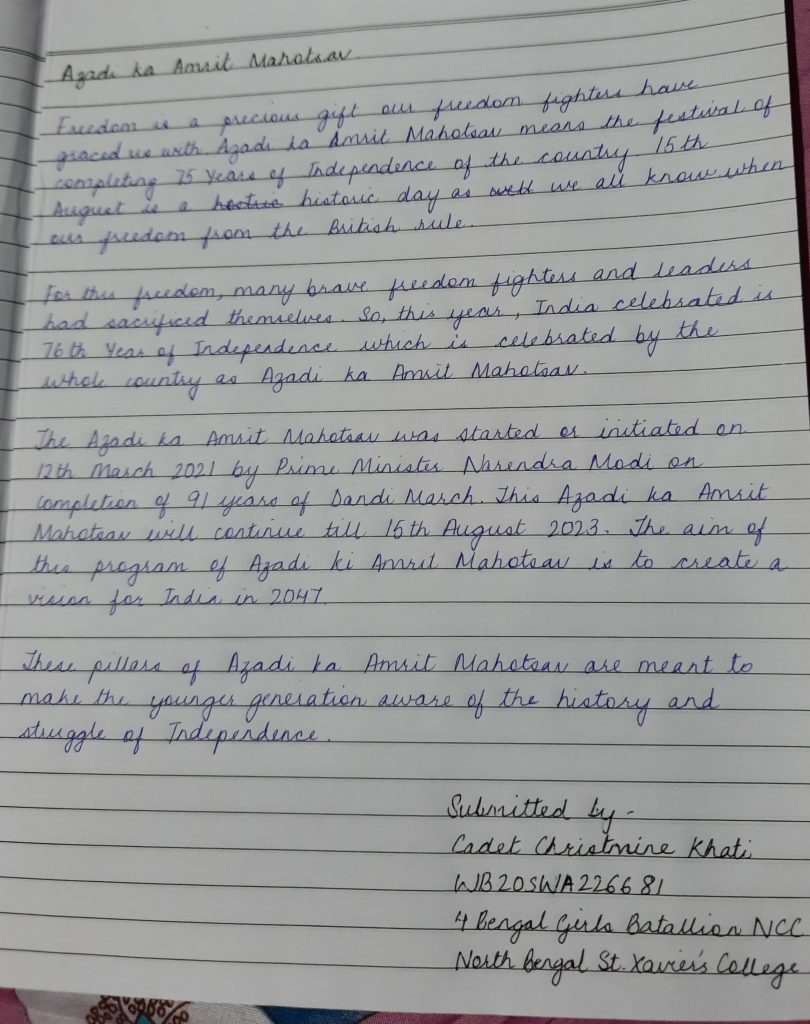 Azadi ka Amrit Mahotsav
Freedom is a precious gift our freedom fighters have
graced us with. Azadi ka Amrit Mahotsav means the festival of
completing 75 Years of Independence of the country. 15th
August is a hectric historic day as well we all know when
our freedom from the British rule.
For this freedom, many brave freedom fighters and leaders
had sacrificed themselves. So, this year, India celebrated is
76th Year of Independence which is celebrated by the
whole country as Azadi ka Amrit Mahotsav.
The Azadi ka Amrit Mahotsav was started or initiated on
12th March 2021 by Prime Minister Narendra Modi on
completion of 91 years of Dandi March. This Azadi ka Amrit
Mahotsav will continue till 15th August 2023. The aim of
this program of Azadi ki Amrit Mahotsav is to create a
vision for India in 2047.
These pillars of Azadi ka Amrit Mahotsav are meant to
make the younger generation aware of the history and
struggle of Independence.
Submitted by -
Cadet Christmine Khati
WB20SWA226681
4 Bengal Girls Batallion NCC
North Bengal St. Xavier's College